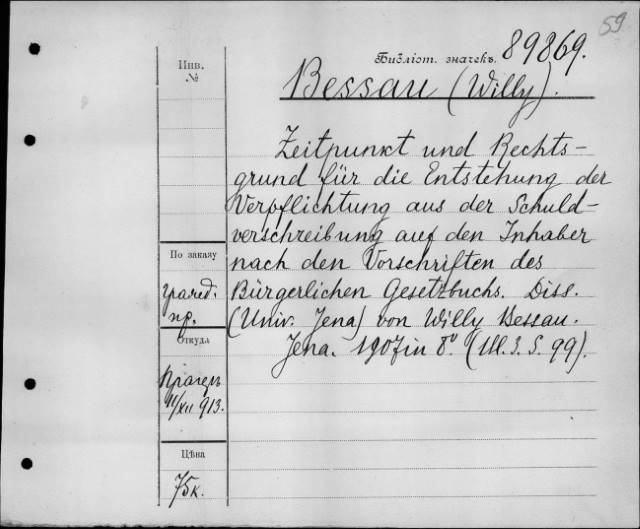 59
Библіот. значекъ. 89869.
Инв. №
Bessau (Willy).
Zeitpunkt und Rechts-
grund für die Entstehung der
Verpflichtung aus der Schuld-
verschreibung auf den Inhaber
nach den Vorschriften des
Bürgerlichen Gesetzbuchs. Diss.
(Univ. Jena) von Willy Bessau.
Jena. 1907 in 8º.
По заказу
гражд.
пр.
Откуда
Прагеръ
11/XII 913.
Цѣна
75к.